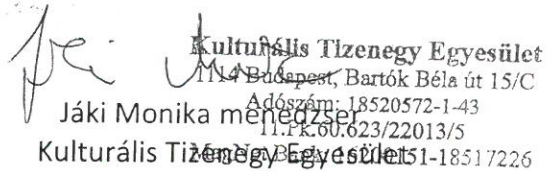 Kulturális Tizenegy Egyesület
1114 Budapest, Bartók Béla út 15/C
Adószám: 18520572-1-43
11.Pk.60.623/22013/5
Jáki Monika menedzser
Kulturális Tizenegy Egyesület
51-18517226